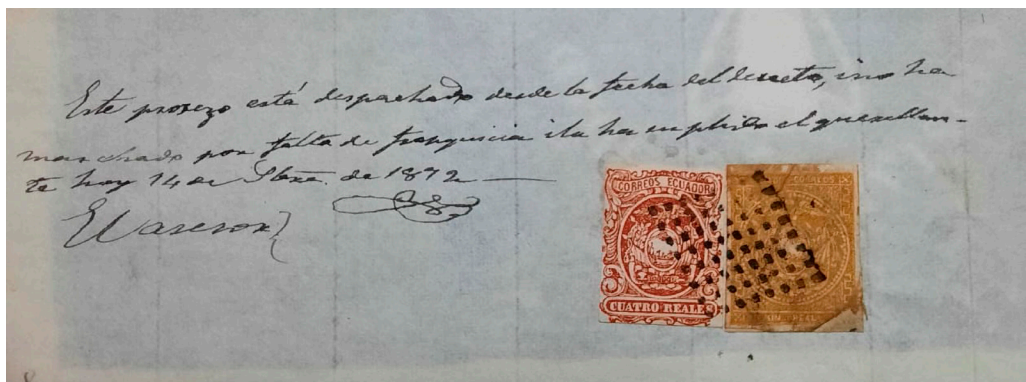 Este proseso está despachado desde la fecha del decreto, i no ha
marchado por falta de franquicia i la ha suplido el querellan-
te hoy 14 de Sbre. de 1872 —
El asesor
CORREOS ECUADOR
CUATRO REALES
CORREOS
UN REAL